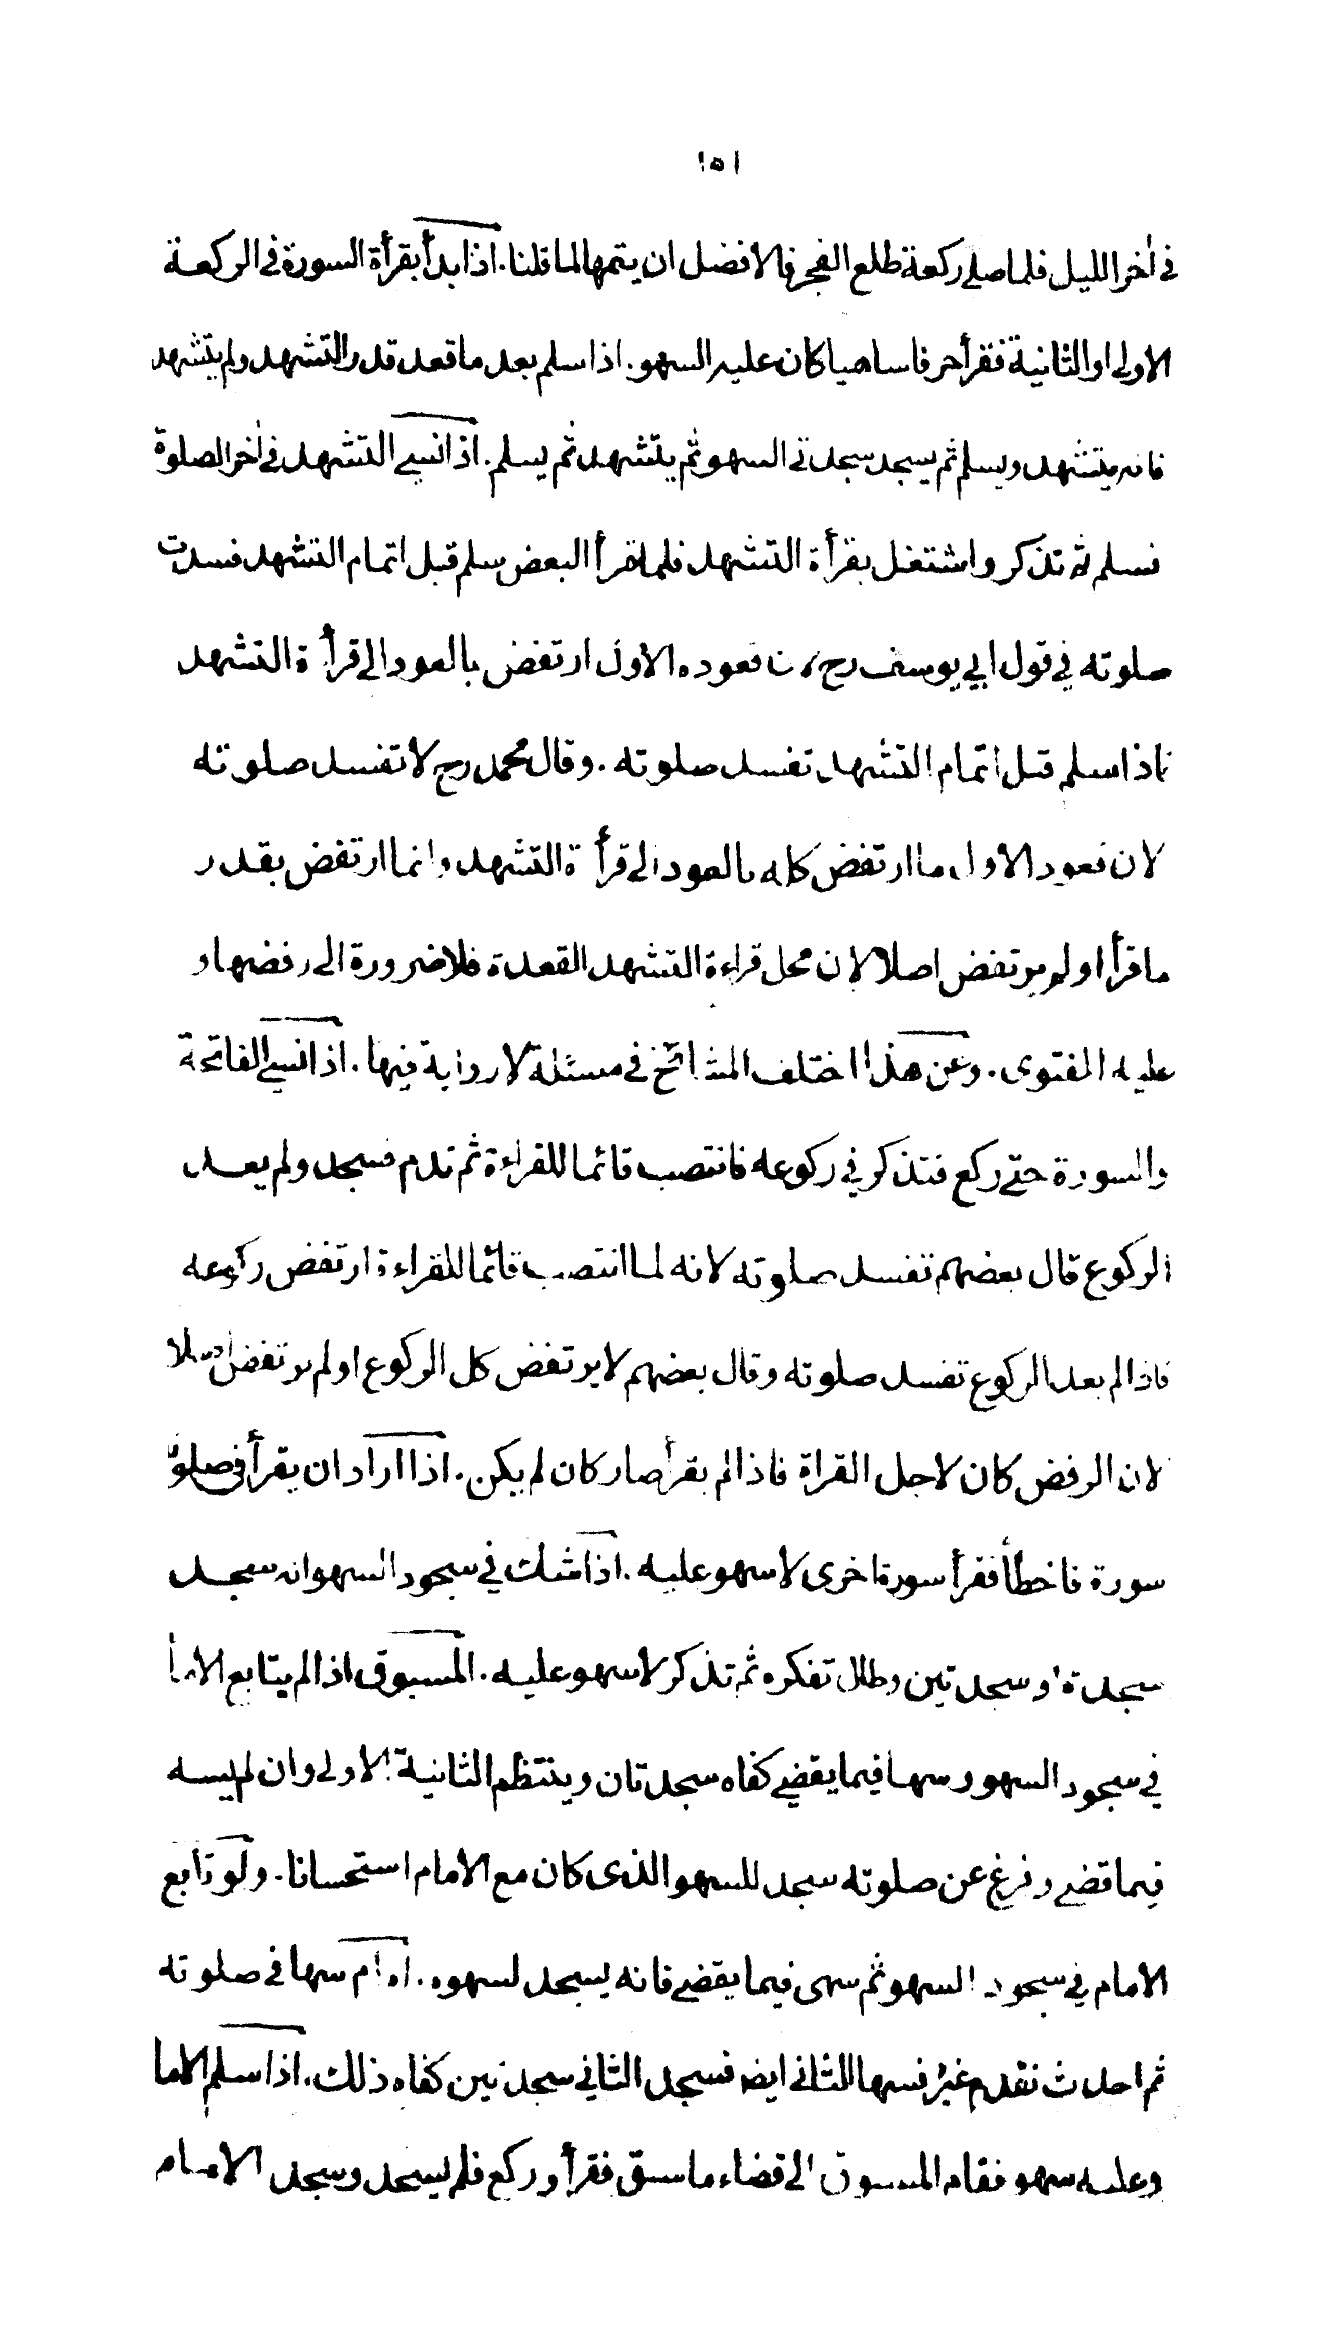 ١٥١
فى أخر الليل فلما صلى ركعة طلع الفجر فالافضل ان يتمها لما قلنا . اذا بدأ بقرأة السورة فى الركعة
الاولى او الثانية فقرأ حرفا ساهيا كان عليه السهو . اذا سلم بعد ما قعد قدر التشهد ولم يتشهد
فانه يتشهد ويسلم ثم يسجد سجدتى السهو ثم يتشهد ثم يسلم . اذا نسي التشهد فى أخر الصلوة
فسلم ثم تذكر واشتغل بقرأة التشهد فلما قرأ البعض سلم قبل اتمام التشهد فسدت
صلوته في قول ابي يوسف رح لان قعوده الاول ارتفض بالعود الى قرأة التشهد
فاذا سلم قبل اتمام التشهد تفسد صلوته . وقال محمد رح لا تفسد صلوته
لان قعود الاول ما ارتفض كله بالعود الى قرأة التشهد وانما ارتفض بقدر
ما قرأ اولم يرتفض اصلا لان محل قراءة التشهد القعدة فلا ضرورة الى رفضها و
عليه الفتوى . وعن هذا اختلف المشائخ في مسئلة لا رواية فيها . اذا نسي الفاتحة
والسورة حتى ركع فتذكر في ركوعه فانتصب قائما للقراءة ثم ندم فسجد ولم يعد
الركوع قال بعضهم تفسد صلوته لانه لما انتصب قائما للقراءة ارتفض ركوعه
فاذا لم يعد الركوع تفسد صلوته وقال بعضهم لا يرتفض كل الركوع اولم يرتفض اصلا
لان الرفض كان لاجل القراة فاذا لم يقرأ صار كان لم يكن . اذا اراد ان يقرأ فى صلوته
سورة فاخطأ فقرأ سورة اخرى لا سهو عليه . اذا شك في سجود السهو انه سجد
سجدة او سجدتين وطال تفكره ثم تذكر لا سهو عليه . المسبوق اذا لم يتابع الاما
في سجود السهو وسها فيما يقضي كفاه سجدتان وينتظم الثانية الاولى وان لم يسه
فيما قضى وفرغ عن صلوته سجد للسهو الذى كان مع الامام استحسانا . ولو تابع
الامام في سجود السهو ثم سهى فيما يقضى فانه يسجد لسهوه . امام سها فى صلوته
ثم احدث فقدم غيره فسها الثانى ايضا فسجد الثاني سجدتين كفاه ذلك . اذا سلم الاما
وعليه سهو فقام المسبوق الى قضاء ما سبق فقرأ وركع فلم يسجد وسجد الامام